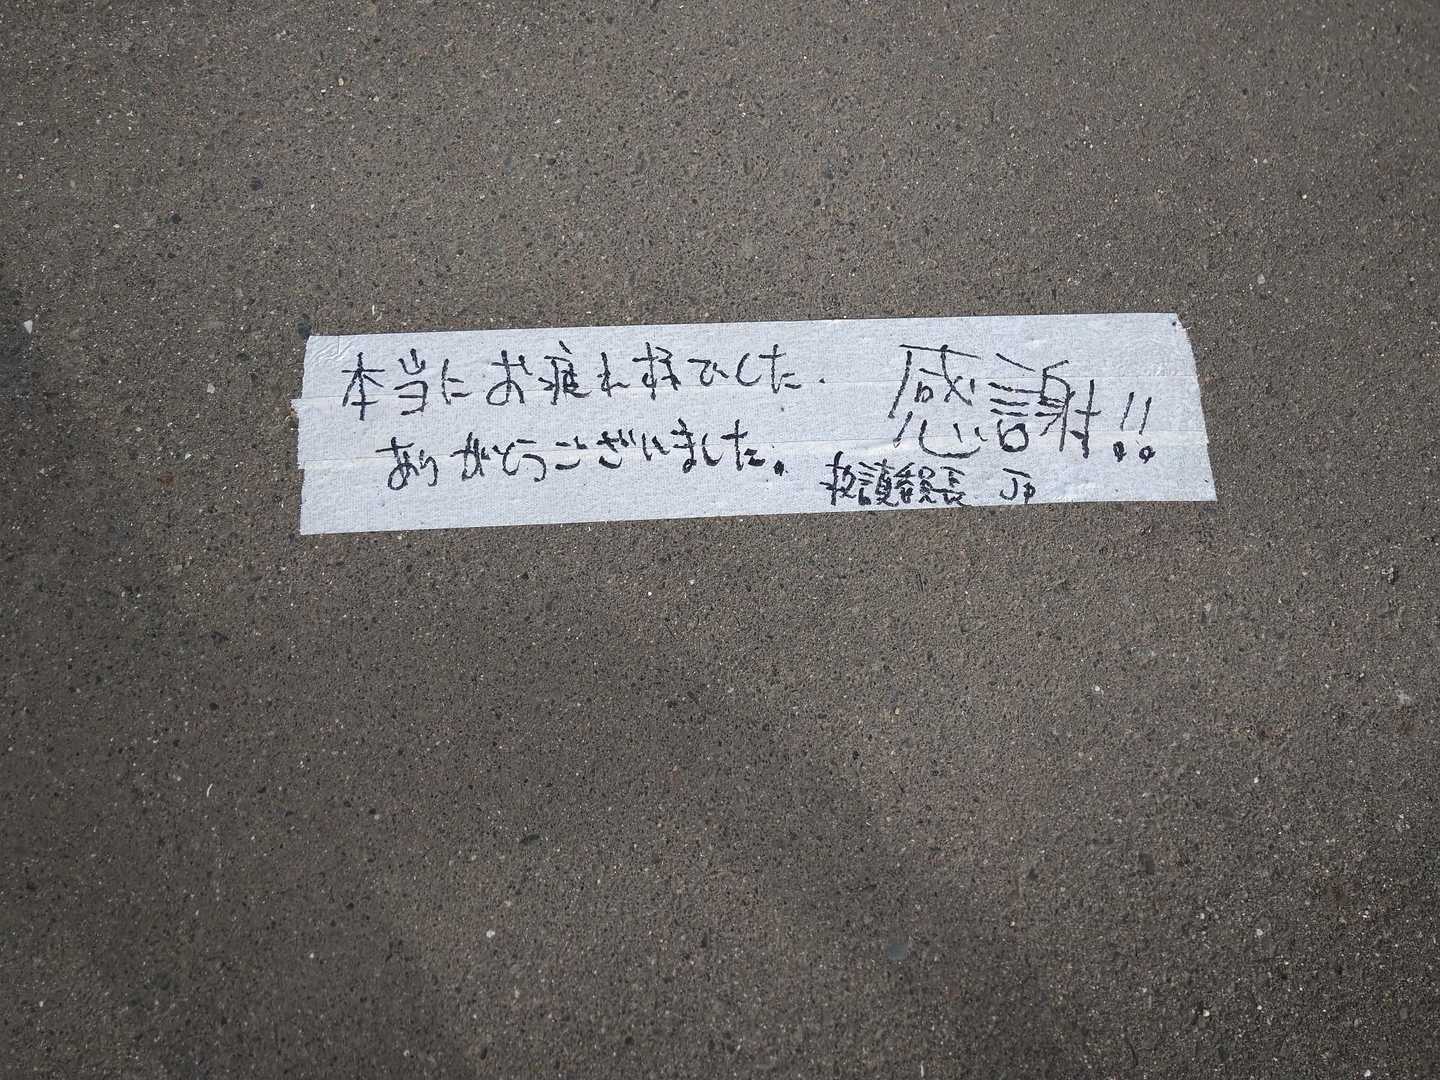 本当にお疲れ様でした.
ありがとうございました。
感謝!!
救護総長